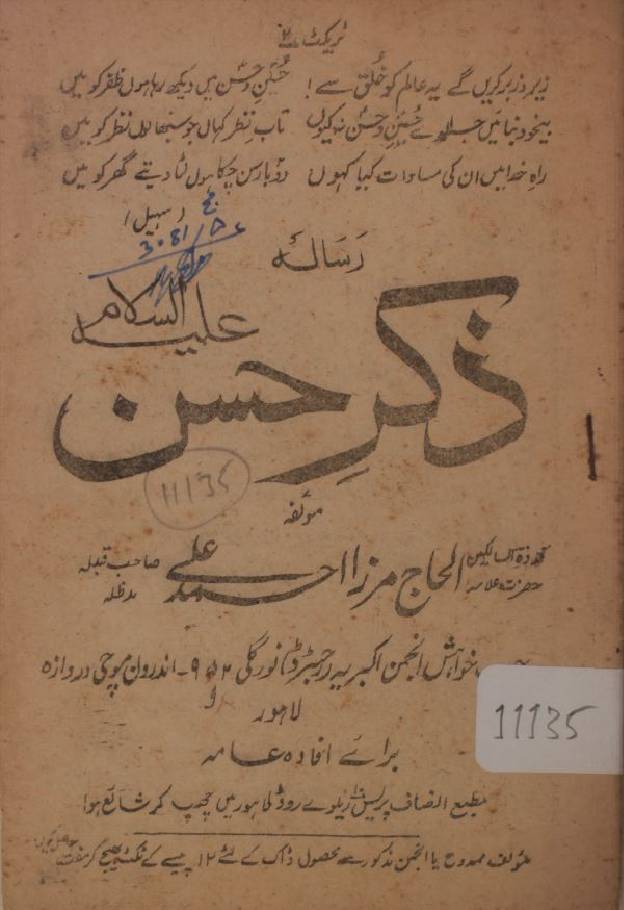 ٹریکٹ
زیر و زبر کریں گے یہ عالم کو خُلق سے! حُسنِ حسن میں دیکھ رہا ہوں ظفر کو میں
بیخود بنائیں جلوے حُسنِ حسن نہ کیوں تاب نظر کہاں جو سنبھالوں نظر کو میں
راہِ خدا میں ان کی مساوات کیا کہوں دو بار سن چکا ہوں لٹا دیتے گھر کو میں
(سہیل)
3.81
رسالہ
ذکرِ حسن علیہ السلام
11135
مولفہ
حضرت علامہ الحاج مرزا احمد علی صاحب قبلہ مدظلہ
خواہش انجمن اکبریہ رجسٹرڈ نور گلی ۹۵۲۔ اندرون موچی دروازہ
لاہور
11135
برائے افادہ عامہ
مطبع انصاف پریس ریلوے روڈ لاہور میں چھپ کر شائع ہوا
مولف ممدوح یا انجمن مذکور سے محصول ڈاک کے لئے ۱۲ پیسے کے ٹکٹ بھیج کر مفت